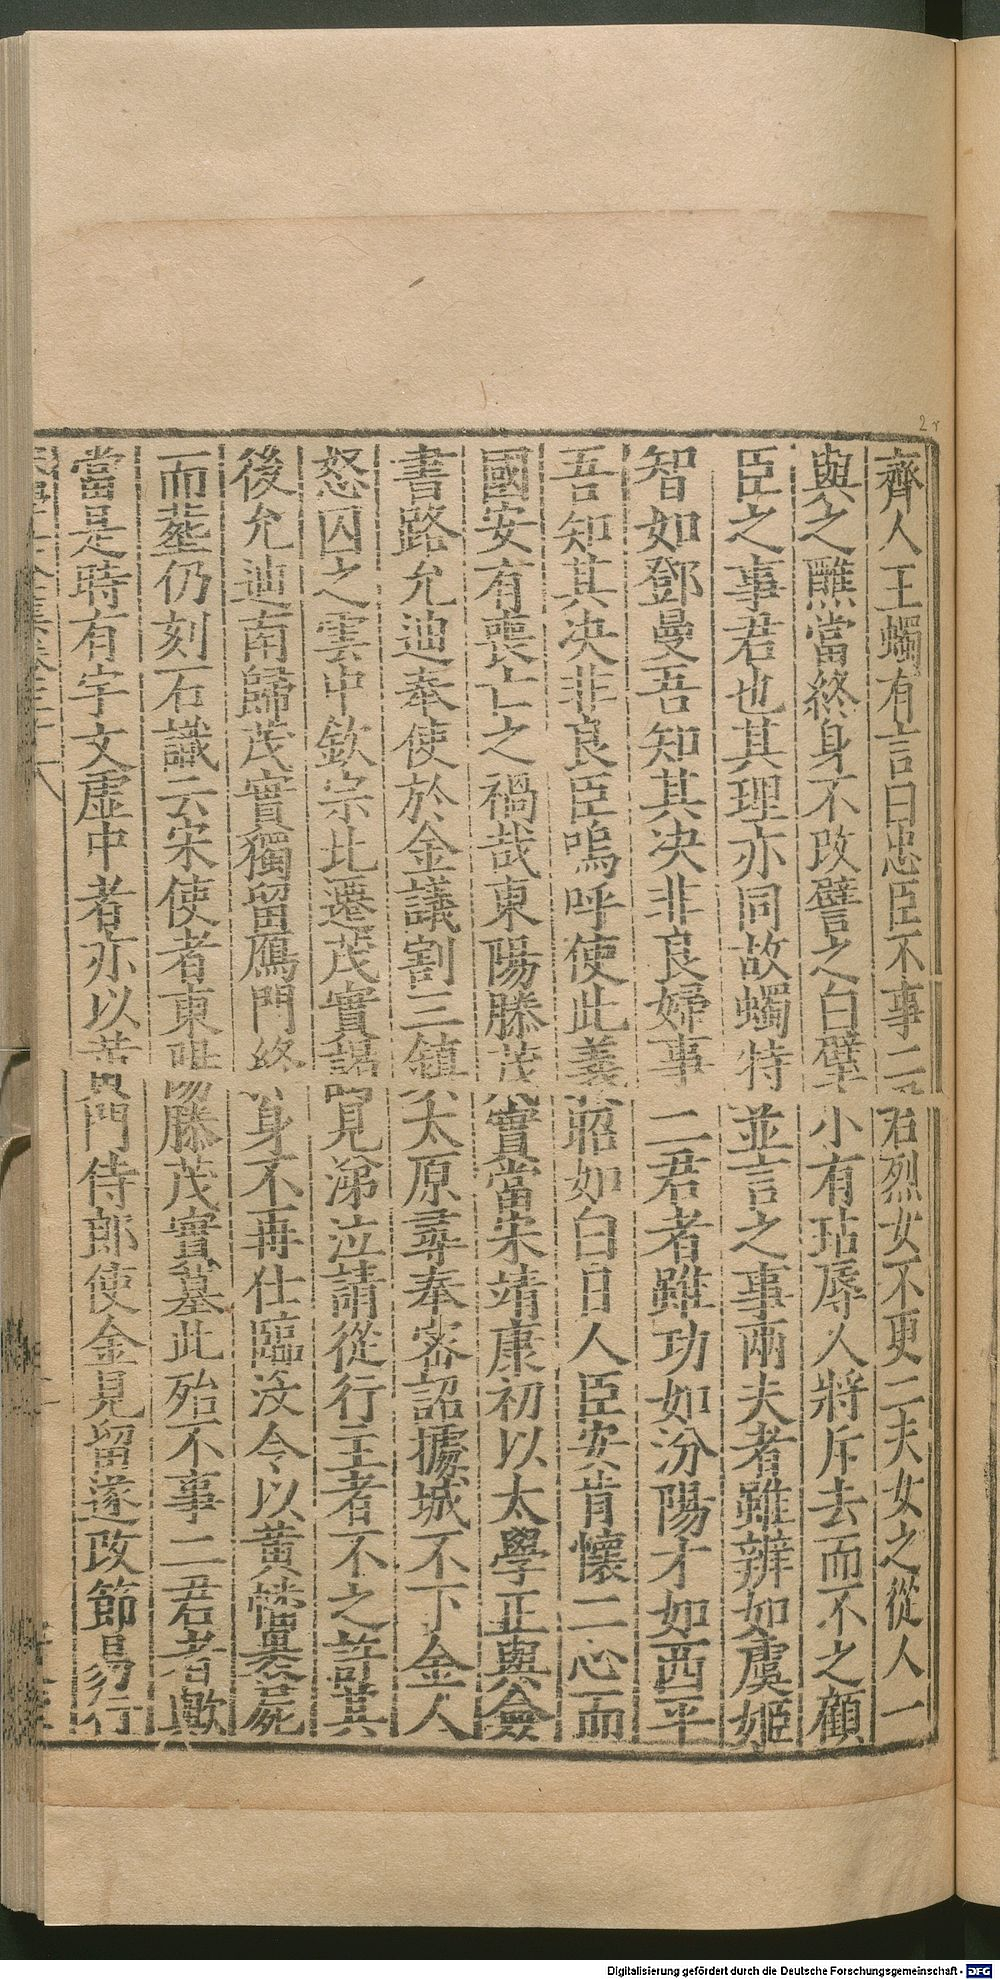 齊人王蠋有言曰忠臣不事二君烈女不更二夫女之從人一
與之醮當終身不改譬之白璧小有玷辱人將斥去而不之顧
臣之事君也其理亦同故蠋特並言之事兩夫者雖辨如虞姬
智如鄧曼吾知其决非良婦事二君者雖功如汾陽才如西平
吾知其决非良臣嗚呼使此義昭如白日人臣安肯懷二心而
國安有喪亡之禍哉東陽滕茂實當宋靖康初以太學正與僉
書路允迪奉使於金議割三鎮太原尋奉密詔據城不下金人
怒囚之雲中欽宗北遷茂實謁見涕泣請從行主者不之許其
後允迪南歸茂實獨留鴈門終身不再仕臨没令以黃幡裹屍
而塟仍刻石識云宋使者東陽滕茂實墓此殆不事二君者歟
當是時有宇文虛中者亦以黃門侍郎使金見留遂改節易行
2r
Digitalisierung gefördert durch die Deutsche Forschungsgemeinschaft - DFG